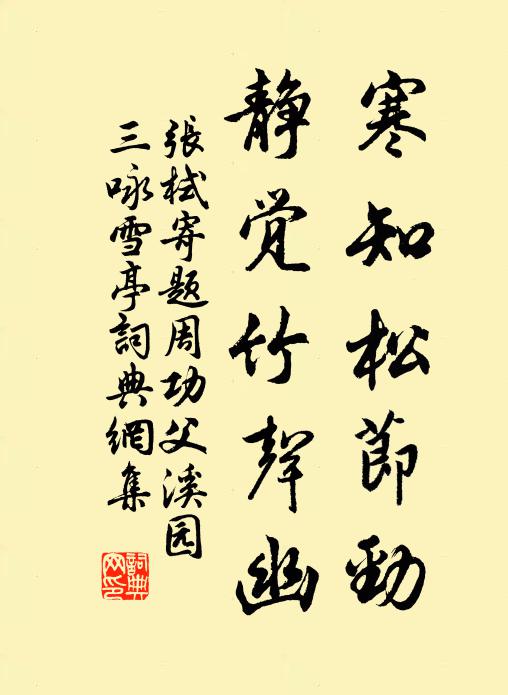 寒知松節勁
静觉竹聲幽
張栻寄題周功父溪园
三咏雪亭詞典網集
詞典
网印